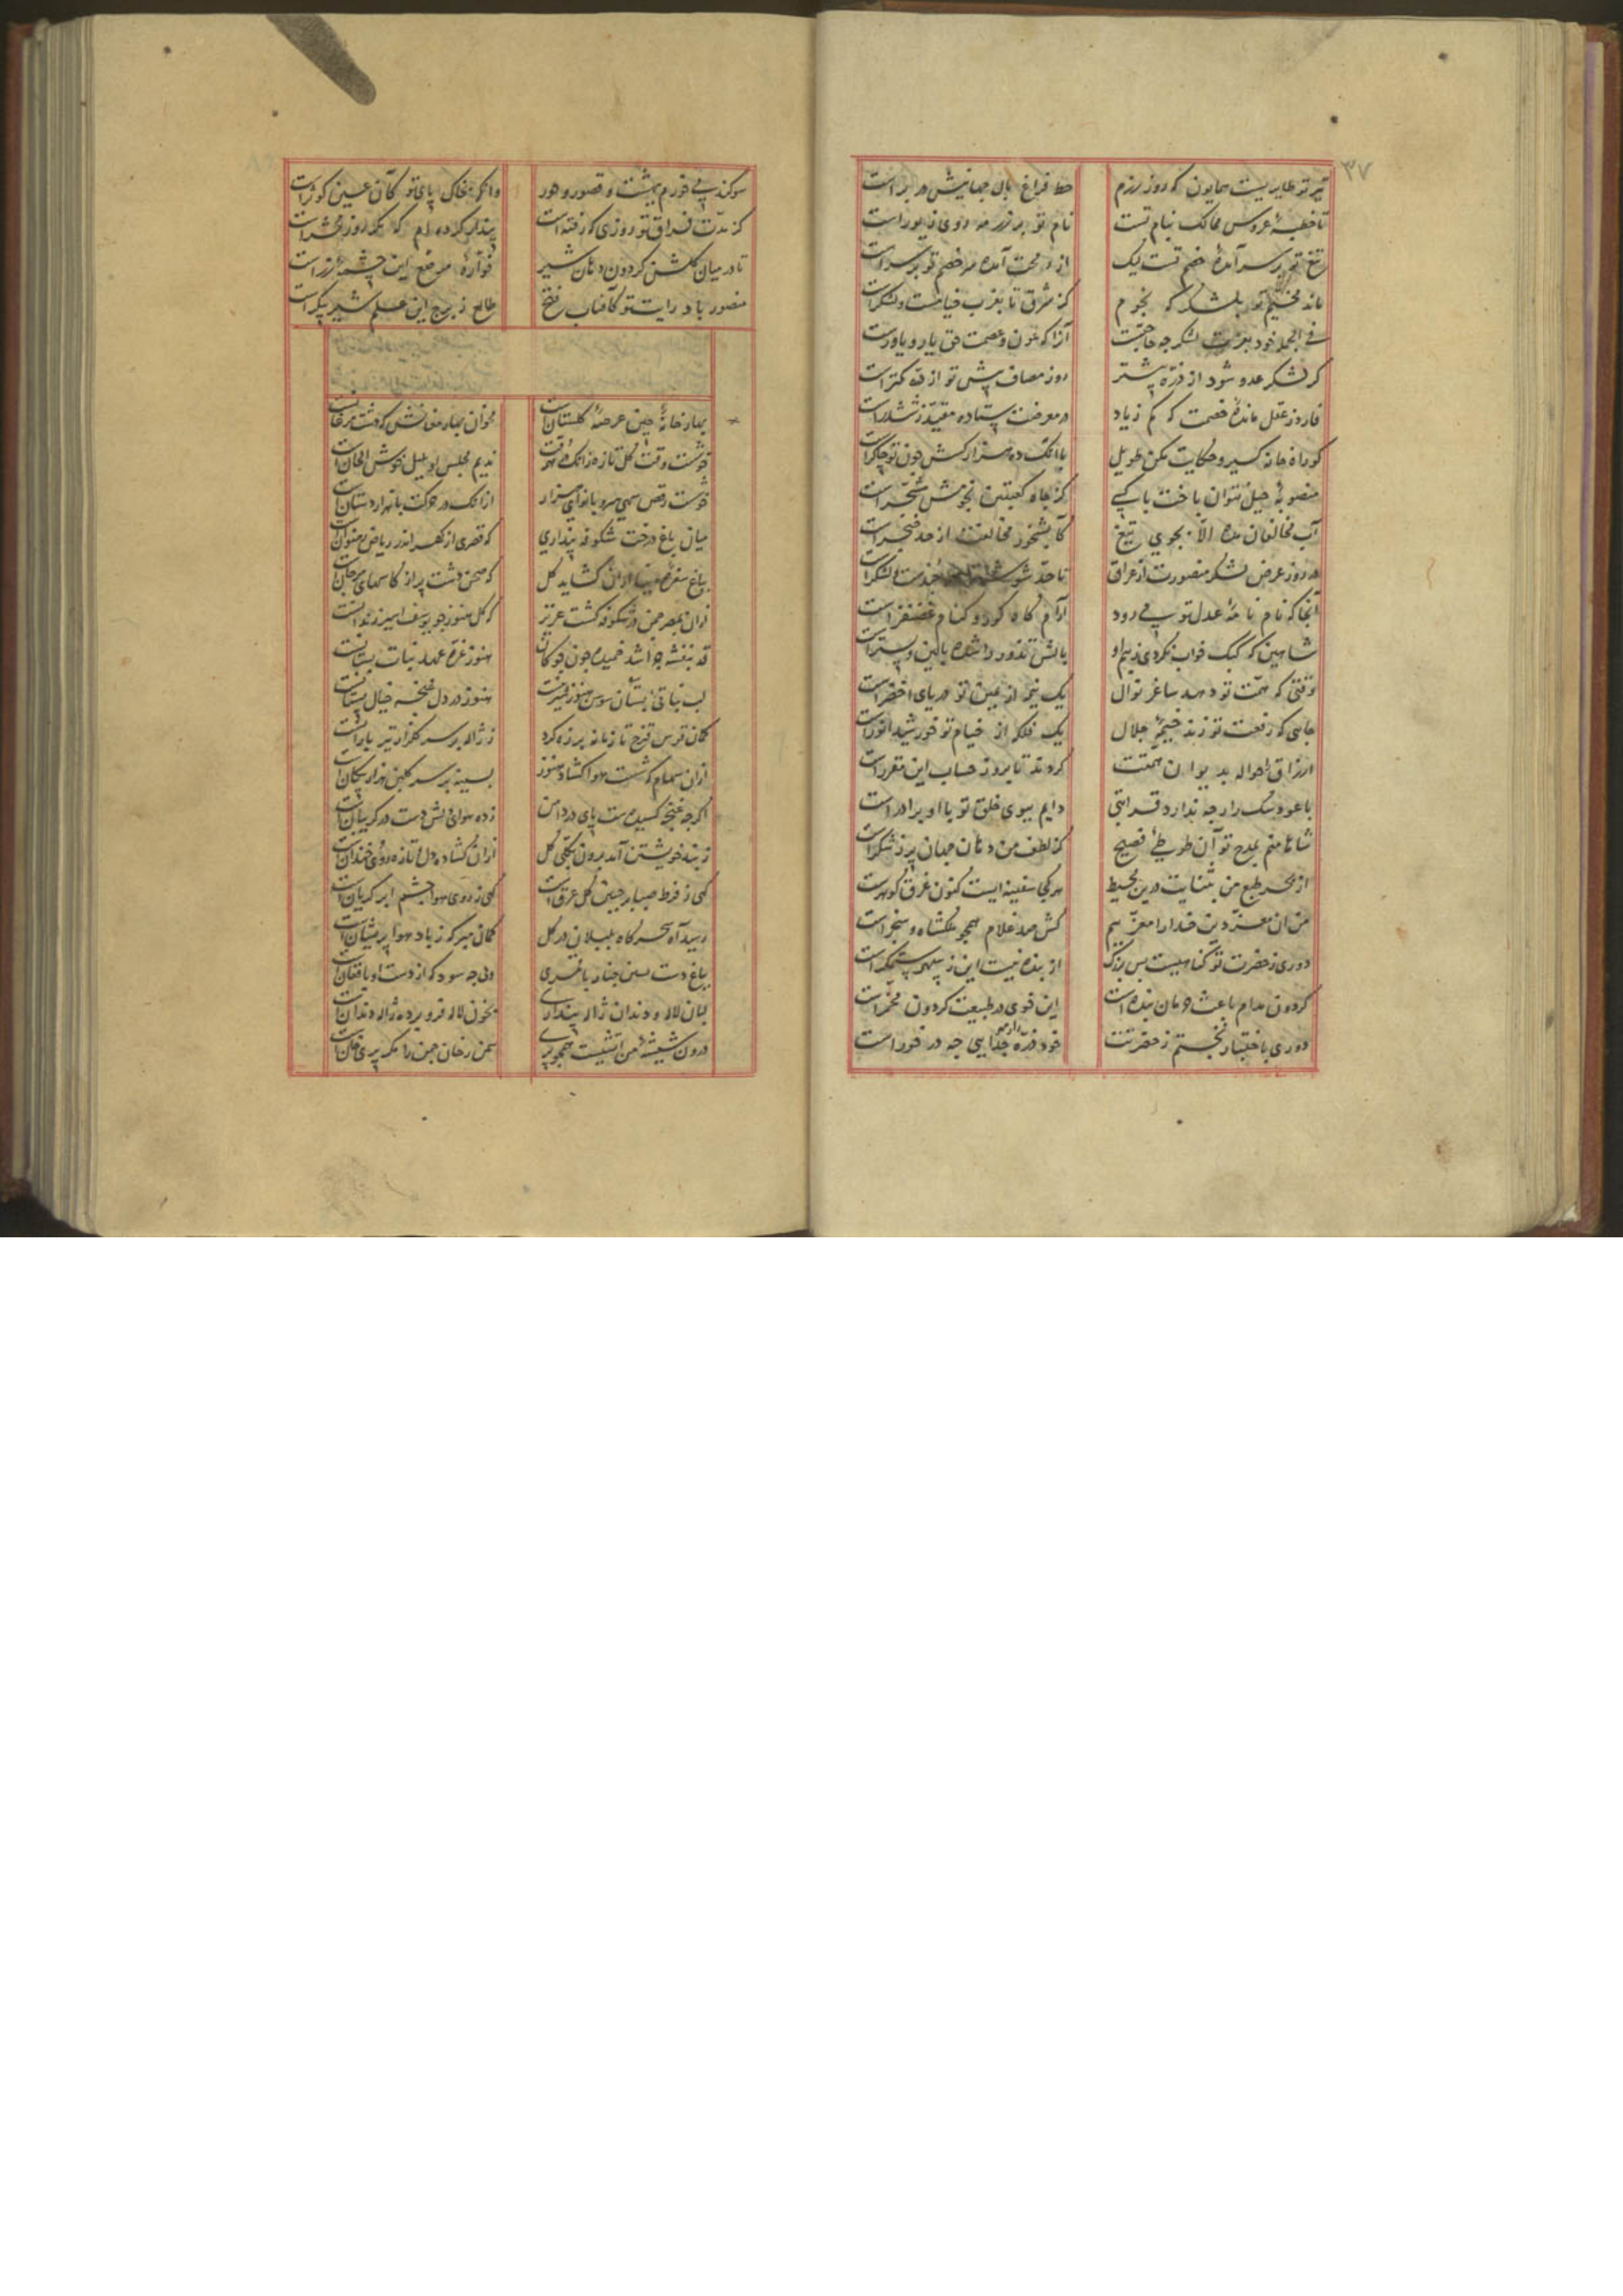 ۳۷
تیر تو طایریست همایون که روز رزم خط فراغ بال جهانیش در براست
تا خطبهٔ عروس ممالک بنام تست نام تو بر زر مه روی زیوراست
تیغ تو بر سر آمدهٔ خصم تست لیک از محنت آمده مر خصم تو بر سراست
ماند مخیم تو بلشکرکه نجوم کز مشرق تا بغرب خیامست و لشکراست
فی الجمله خود بعزت لشکر چه حاجتست آنرا که عون و عصمت حق یار و یاورست
کر لشکر عدو شود از ذره بیشتر روز مصاف پیش تو از ذره کمتراست
فارد ز عقل مانده خصمت که کم زیاد در معرضت ستاده مقید ز ششدراست
کو راه خانه کیر و حکایت مکن طویل با انک ده هزار کسش چون تو چاکراست
منصوبهٔ حیل نتوان باخت با کسی کز جاه کعبتین نجومش مسخراست
آب مخالفان مده الا بجوی تیغ کابشخور مخالفت از حد خنجراست
در روز عرض لشکر منصورت از عراق تا حد شوشتر لشکراست
آنجا که نام نامهٔ عدل تو می رود آرام کاه کور و کنام غضنفراست
شاهین که کبک خواب نکردی ز بیم او بالش تذرو را شده بالین و بستراست
وقتی که همت تو دهد ساغر نوال یک نم از یمین تو دریای اخضراست
جایی که رفعت تو زند خیمهٔ جلال یک فلکه از خیام تو خورشید انوراست
ارزاق را حواله بدیوان همتت کردند تا بروز حساب این مقرراست
با عود مشک را چه ندارد قرابتی دایم ببوی خلق تو با او برادراست
شاها منم بمدح تو آن طوطی فصیح کز لطف من دهان جهان پر ز شکراست
از بحر طبع من بثنایت درین محیط هر کجا سفینه ایست کنون غرق کوهرست
من ان معز دین خدا را معزیم کش صد غلام همجو ملکشاه و سنجراست
دوری ز حضرت تو کناهیست بس بزرک از بنده نیست این ز سپهر ستمکراست
کردون مدام باعث حرمان بنده است این خوی در طبیعت کردون مخمراست
دوری باختیار نجستم ز حضرتت خود ذره را ز مهر جدایی چه در خوراست
سوکند می خورم ببهشت و قصور و حور وانکه بخاک پای تو کان عین کوثراست
کز مدت فراق تو روزی که رفته است پندار کرده ام که مکر روز محشراست
تا در میان کلشن کردون دهان شیر فوارهٔ مرصع این چشمهٔ زراست
منصور باد رایت تو کافتاب فتح طالع ز برج این علم شیر پیکراست
بهار خانهٔ چین عرصهٔ کلستانست مخوان بهار مغانش که دشت مرغانست
خوشست وقت کل تازه زانک هر وقت ندیم مجلس او بلبل خوش الحانست
خوشست رقص سهی سرو با نوای هزار ازانک در حرکت با هزار دستانست
میان باغ درخت شکوفه پنداری که قصری از کهر اندر ریاض رضوانست
بباغ سفرهٔ مینا ازان کشاید کل که صحن دشت پر از کاسهای مرجانست
ازان بمصر چمن در شکوفه کشت عزیز که کل هنوز چو یوسف اسیر زندانست
قد بنفشه چرا شد خمیده چون جوکان هنوز غره عهد نبات بستانست
لب نباتی بستان سوسن هنوز هنوز در دل غنچه خیال پستانست
کمان قوس قزح تا زمانه بر زه کرد ز ژاله بر سر کلزار تیر بارانست
ازان سهام که شست هوا کشاد هنوز بسینه بر سر کلبن هزار پیکانست
اکرچه غنچه کشیدست پای در دامن زده هوای دلش دست در کریبانست
ز بند خویشتن آمد برون بکلی کل ازان کشاده دل و تازه روی خندانست
کهی ز فرط صبا بر جبین کل عرقست کهی ز روی هوا چشم ابر کریانست
رسید آه سحرکاه بلبلان در کل کمان مبر که ز باد هوا پریشانست
بباغ دست بسی چنار با قمری ولی چه سود که از دست او بافغانست
لبان لاله و دندان ژاله پنداری بخون لاله فرو برده ژاله دندانست
درون شیشهٔ من اتشیست همجو پری سمن رخان چمن را مکر پری خوانست